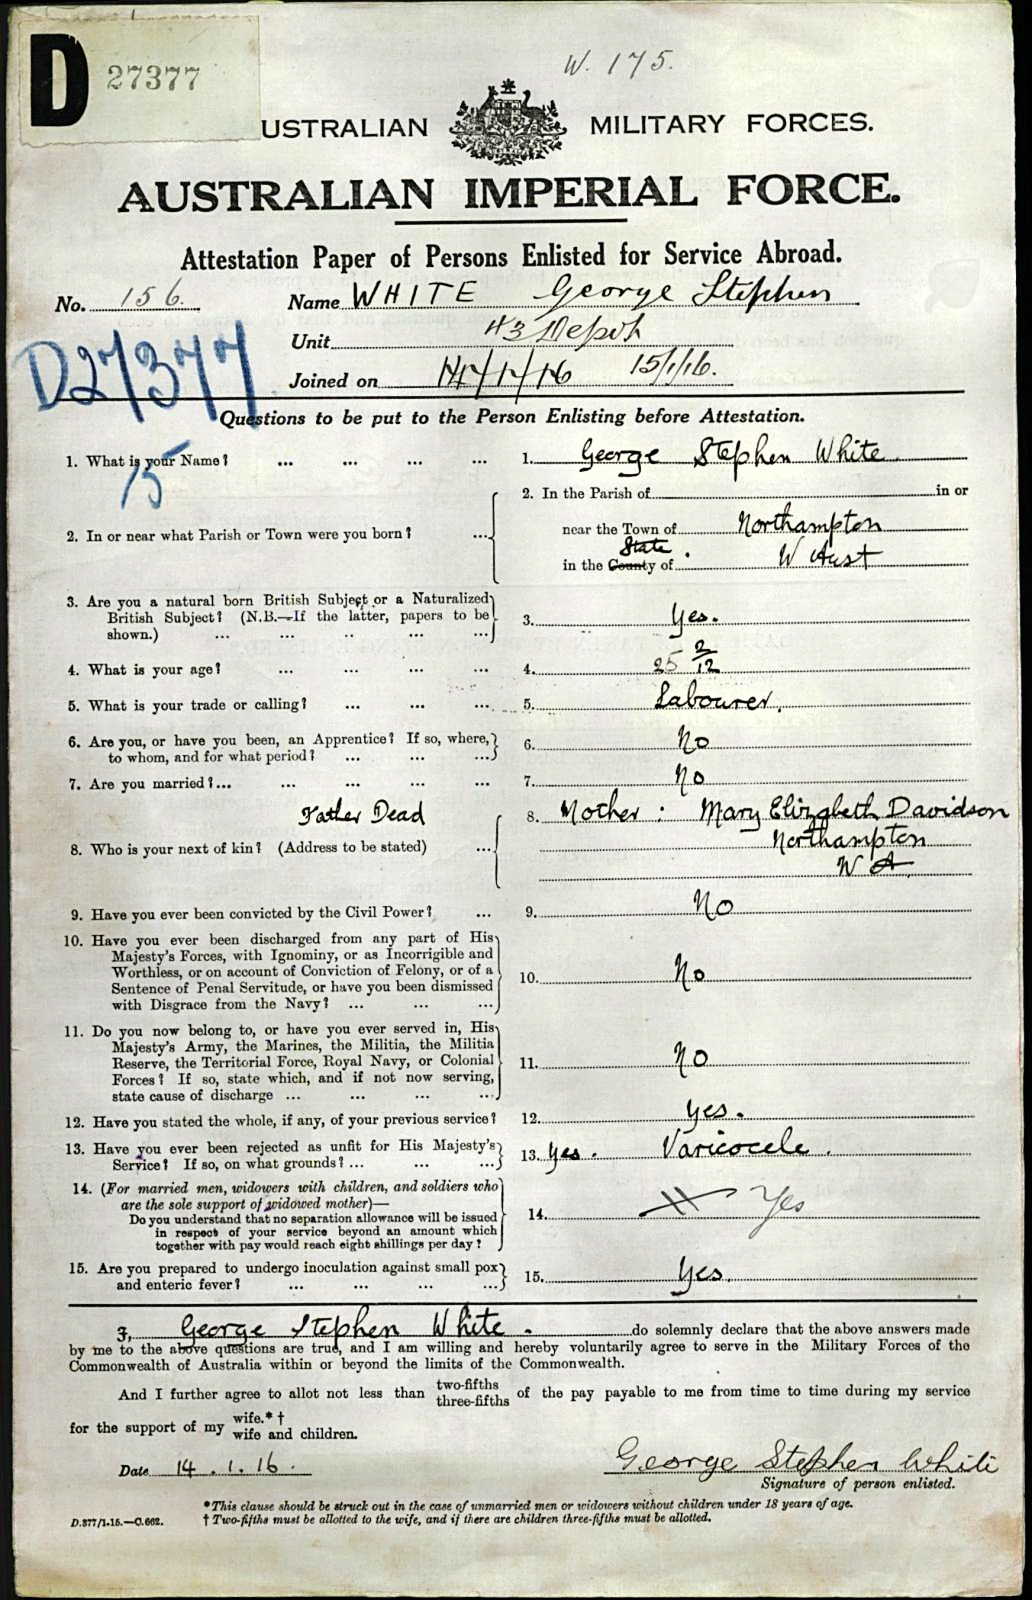 D 27377
W. 175.
USTRALIAN MILITARY FORCES.
AUSTRALIAN IMPERIAL FORCE.
Attestation Paper of Persons Enlisted for Service Abroad.
No. 156. Name WHITE George Stephen
Unit 43 Depot
Joined on 14/1/16 15/1/16.
D27377
15
Questions to be put to the Person Enlisting before Attestation.
1. What is your Name? ... ... ... ... 1. George Stephen White.
2. In or near what Parish or Town were you born? ... 2. In the Parish of in or
near the Town of Northampton
State
in the County of W Aust
3. Are you a natural born British Subject or a Naturalized
British Subject? (N.B.—If the latter, papers to be
shown.) ... ... .. ... ... 3. Yes.
4. What is your age? ... ... ... ... 4. 25 2/12
5. What is your trade or calling? ... ... ... 5. Labourer.
6. Are you, or have you been, an Apprentice? If so, where,
to whom, and for what period? ... ... ... 6. No
7. Are you married?... ... ... ... ... 7. No
Father Dead
8. Who is your next of kin? (Address to be stated) ... 8. Mother : Mary Elizabeth Davidson
Northampton
W A
9. Have you ever been convicted by the Civil Power? ... 9. No
10. Have you ever been discharged from any part of His
Majesty's Forces, with Ignominy, or as Incorrigible and
Worthless, or on account of Conviction of Felony, or of a
Sentence of Penal Servitude, or have you been dismissed
with Disgrace from the Navy? ... ... ... 10. No
11. Do you now belong to, or have you ever served in, His
Majesty's Army, the Marines, the Militia, the Militia
Reserve, the Territorial Force, Royal Navy, or Colonial
Forces? If so, state which, and if not now serving,
state cause of discharge ... ... ... ... 11. No
12. Have you stated the whole, if any, of your previous service? 12. Yes.
13. Have you ever been rejected as unfit for His Majesty's
Service? If so, on what grounds? ... ... ... 13. Yes. Varicocele.
14. (For married men, widowers with children, and soldiers who
are the sole support of widowed mother)—
Do you understand that no separation allowance will be issued
in respect of your service beyond an amount which
together with pay would reach eight shillings per day? 14. Yes
15. Are you prepared to undergo inoculation against small pox
and enteric fever? ... ... ... ... 15. Yes.
I, George Stephen White. do solemnly declare that the above answers made
by me to the above questions are true, and I am willing and hereby voluntarily agree to serve in the Military Forces of the
Commonwealth of Australia within or beyond the limits of the Commonwealth.
And I further agree to allot not less than two-fifths three-fifths of the pay payable to me from time to time during my service
for the support of my wife.*† wife and children.
Date 14.1.16. George Stephen White
Signature of person enlisted.
*This clause should be struck out in the case of unmarried men or widowers without children under 18 years of age.
D.377/1.15.—C.662. † Two-fifths must be allotted to the wife, and if there are children three-fifths must be allotted.